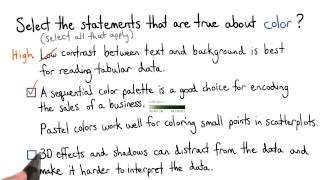 Select the statements that are true about color?
(select all that apply)
High Low contrast between text and background is best
for reading tabular data.
A sequential color palette is a good choice for encoding
the sales of a business.
Pastel colors work well for coloring small points in scatterplots.
3D effects and shadows can distract from the data and
make it harder to interpret the data.